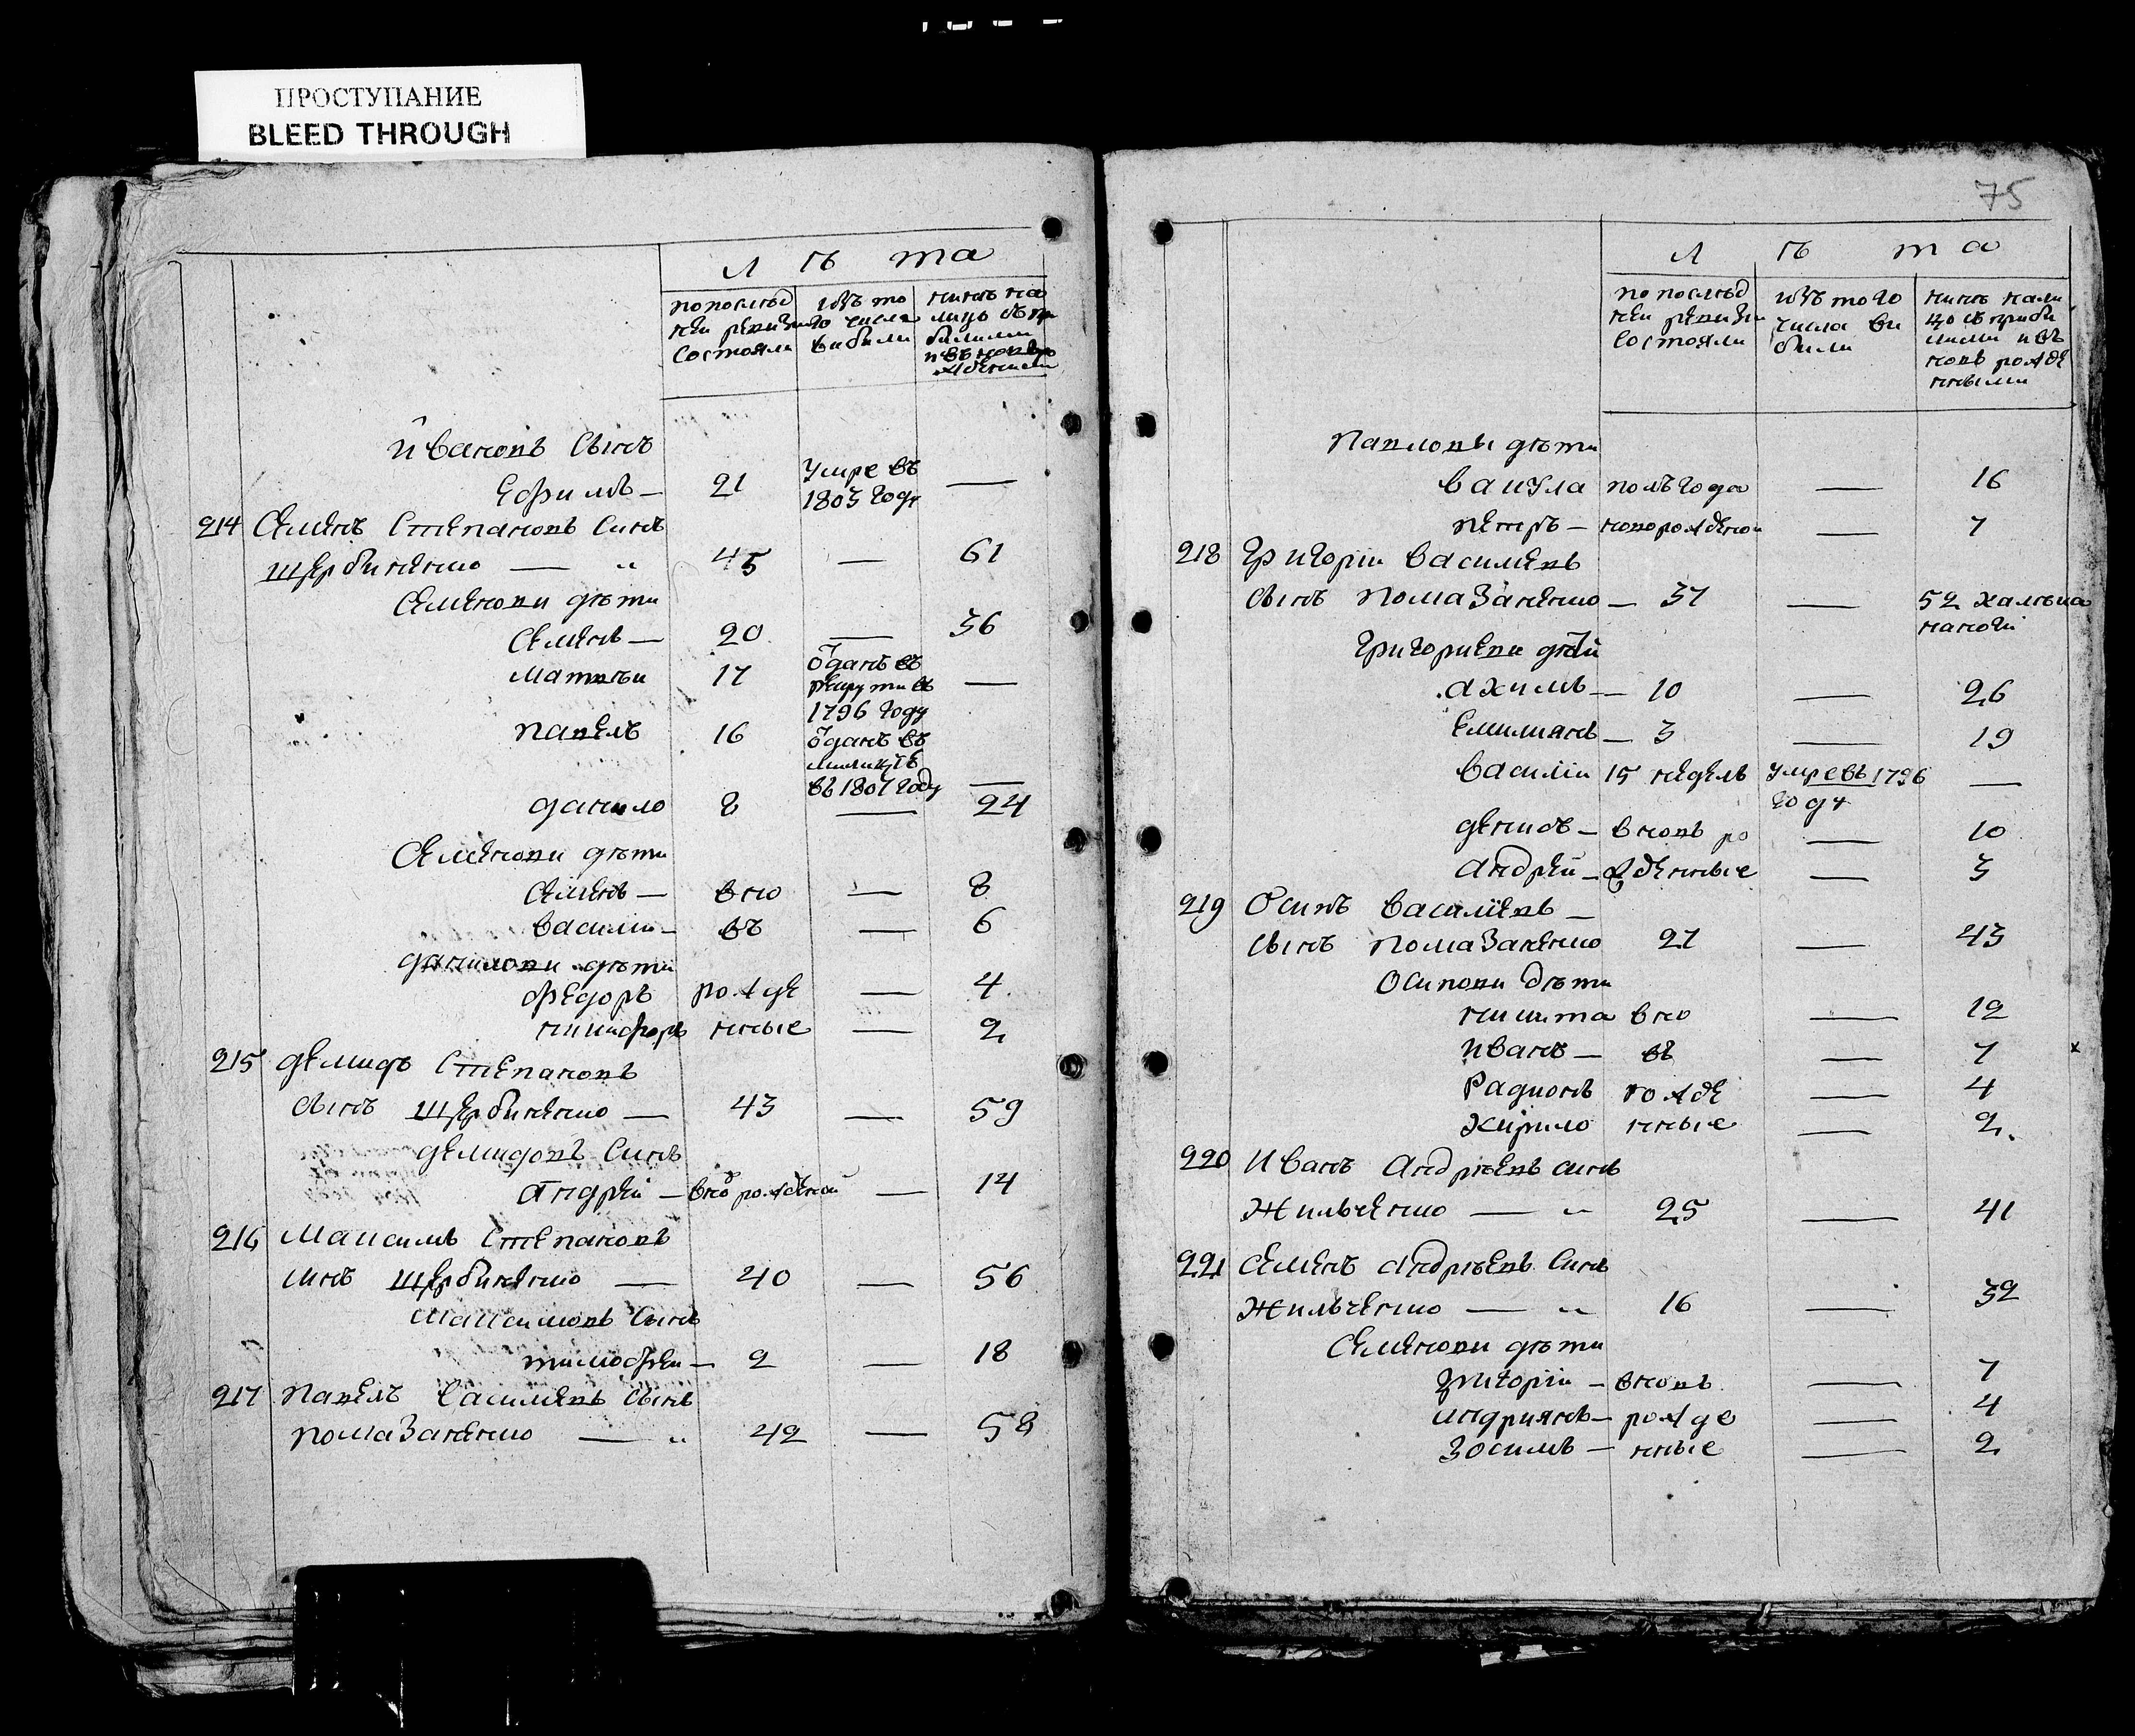 ПРОСТУПАНИЕ
BLEED THROUGH
75
Л ѣ та
по послѣд ней ревизи состояли
изъ то го числа выбили
нынѣ на лицо съ при былыми и въ новь ро жденными
Ивановъ сынъ
Ефимъ — 21 умре въ 1803 году —
214 Семенъ Степановъ синъ
Щербиненко — 45 — 61
Семенови дѣти
Семенъ — 20 — 36
Матвѣи 17 ѿданъ въ рекрути въ 1796 году —
Павелъ 16 ѿданъ въ милицїю въ 1807 году —
данило 8 — 24
Семенови дѣти
Семенъ — вно — 8
василии — въ — 6
данилови дѣти
Федоръ рожде — 4
никифоръ нные — 2
215 демидъ Степановъ
сынъ Щербиненко — 43 — 59
демидовъ синъ
Андрей — вно рожденой — 14
216 Максимъ Степановъ
синъ Щербиненко — 40 — 56
Максимовъ сынъ
тимофеи — 2 — 18
217 Павелъ василиевъ сынъ
помазаненко — 42 — 58
Л ѣ та
по послѣд ней ревизи состояли
изъ того числа вы были
нынѣ нали цо съ прибы лими и въ новь рожде нными
Павловы дѣти
вакула полъ года — 16
петръ — новорожденои — 7
218 григории василиевъ
сынъ помазаненко — 37 — 52
григориеви дѣти
акимъ — 10 — 26
емилиянъ — 3 — 19
василии 15 недель умре въ 1796 году —
денисъ — вновь ро — 10
андрей — жденные — 3
219 Осипъ василїевъ —
сынъ помазаненко 27 — 43
Осипови дѣти
никита вно — 12
Иванъ — въ — 7
Радионъ рожде — 4
Кирило нные — 2.
220 Иванъ Андрѣевъ синъ
Жильченко — 25 — 41
221 Семенъ Андрѣевъ синъ
Жильченко — 16 — 32
Семенови дѣти
григорїи — вновь — 7
андриянъ — рожде — 4
зосимъ — нные — 2